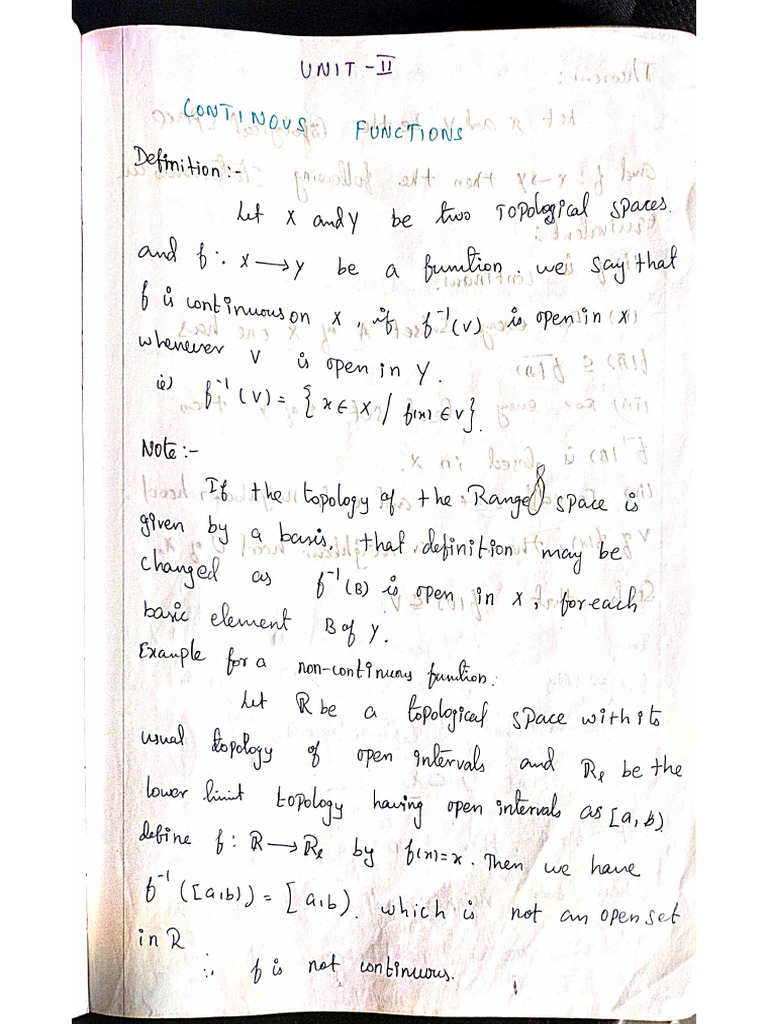 UNIT-II
CONTINOUS FUNCTIONS
Definition:-
Let X and Y be two TOPOlogical spaces.
and f: X→Y be a function. we say that
f is continuous on X, if f⁻¹(V) is open in X
whenever V is open in Y.
ie) f⁻¹(V) = {x∈X / f(x)∈V}.
Note:-
If the topology of the Range space is
given by a basis, that definition may be
changed as f⁻¹(B) is open in X, for each
basic element B of Y.
Example for a non-continuous function:
Let ℝ be a topological space with its
usual topology of open intervals and ℝℓ be the
lower limit topology having open intervals as [a,b)
define f: ℝ→ℝℓ by f(x)=x. Then we have
f⁻¹([a,b)) = [a,b). which is not an open set
in ℝ
∴ f is not continuous.